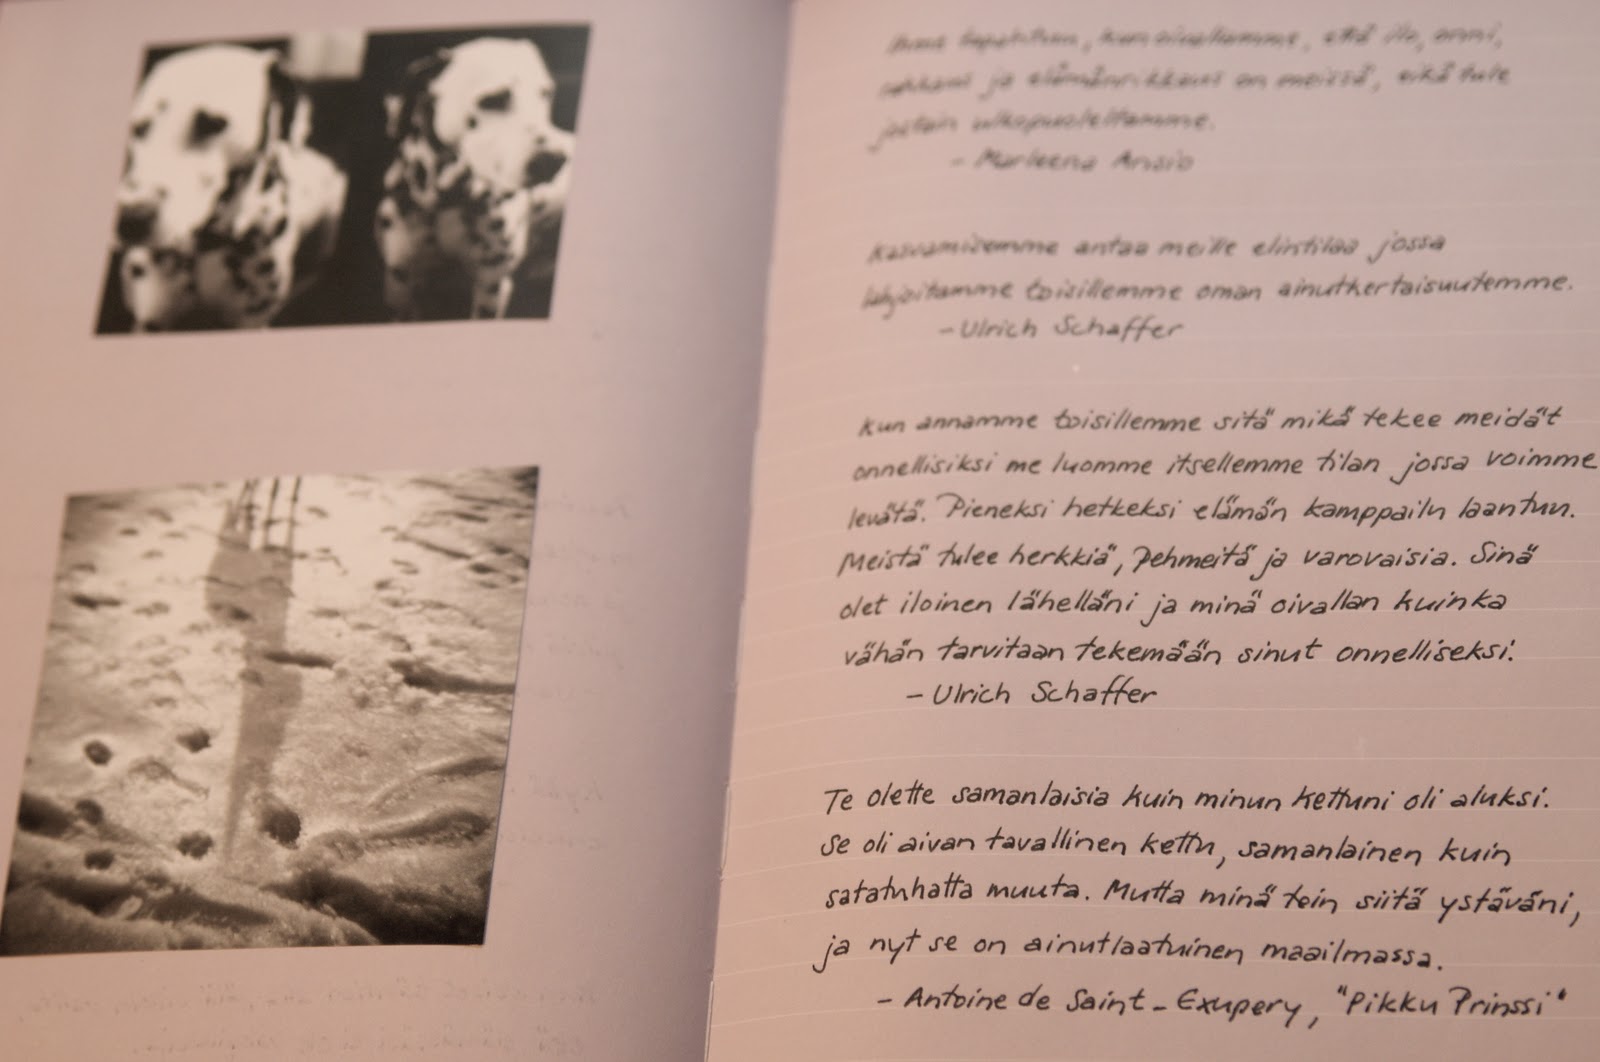 Ihme tapahtuu, kun oivallamme, että ilo, onni,
rakkaus ja elämänrikkaus on meissä, eikä tule
jostain ulkopuoleltamme.
- Marleena Ansio
Kasvamisemme antaa meille elintilaa jossa
lahjoitamme toisillemme oman ainutkertaisuutemme.
- Ulrich Schaffer
Kun annamme toisillemme sitä mikä tekee meidät
onnellisiksi me luomme itsellemme tilan jossa voimme
levätä. Pieneksi hetkeksi elämän kamppailu laantuu.
Meistä tulee herkkiä, pehmeitä ja varovaisia. Sinä
olet iloinen lähelläni ja minä oivallan kuinka
vähän tarvitaan tekemään sinut onnelliseksi.
- Ulrich Schaffer
Te olette samanlaisia kuin minun kettuni oli aluksi.
Se oli aivan tavallinen kettu, samanlainen kuin
satatuhatta muuta. Mutta minä tein siitä ystäväni,
ja nyt se on ainutlaatuinen maailmassa.
- Antoine de Saint-Exupery, "Pikku Prinssi"